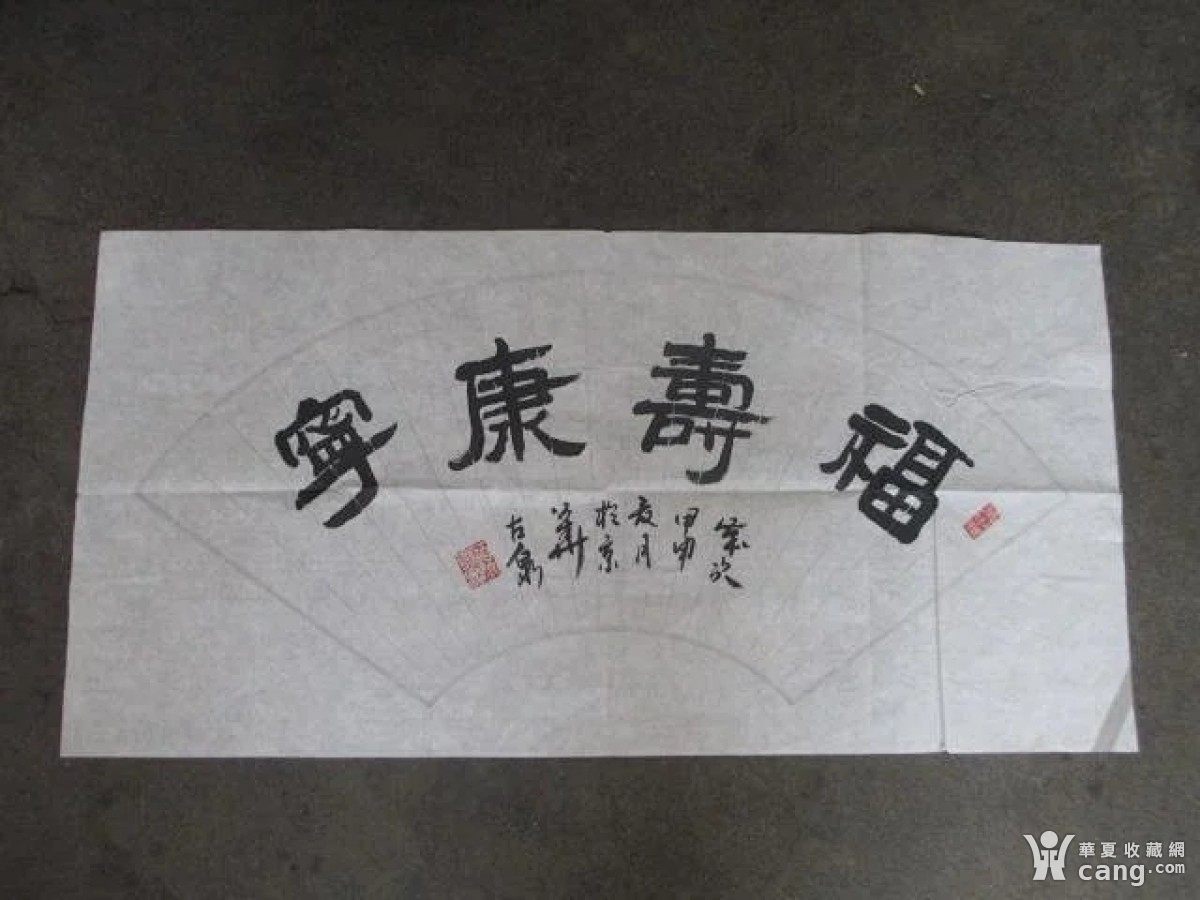 福壽康寧
歲次
甲申
夏月
於京
華
古泉
華夏收藏網
cang.com